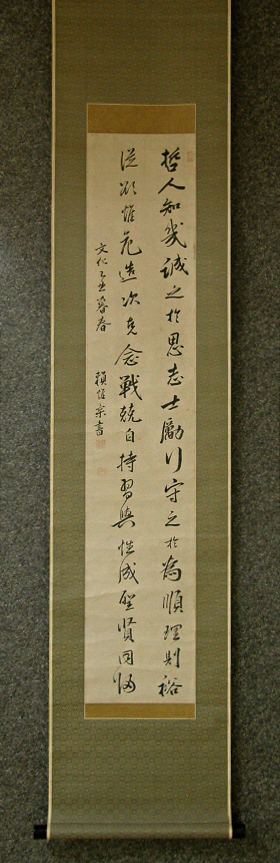 哲人知幾誠之於思志士勵行守之於為順理則裕
從欲惟危造次克念戰兢自持習與性成聖賢同歸
文化乙丑暮春 賴惟柔書